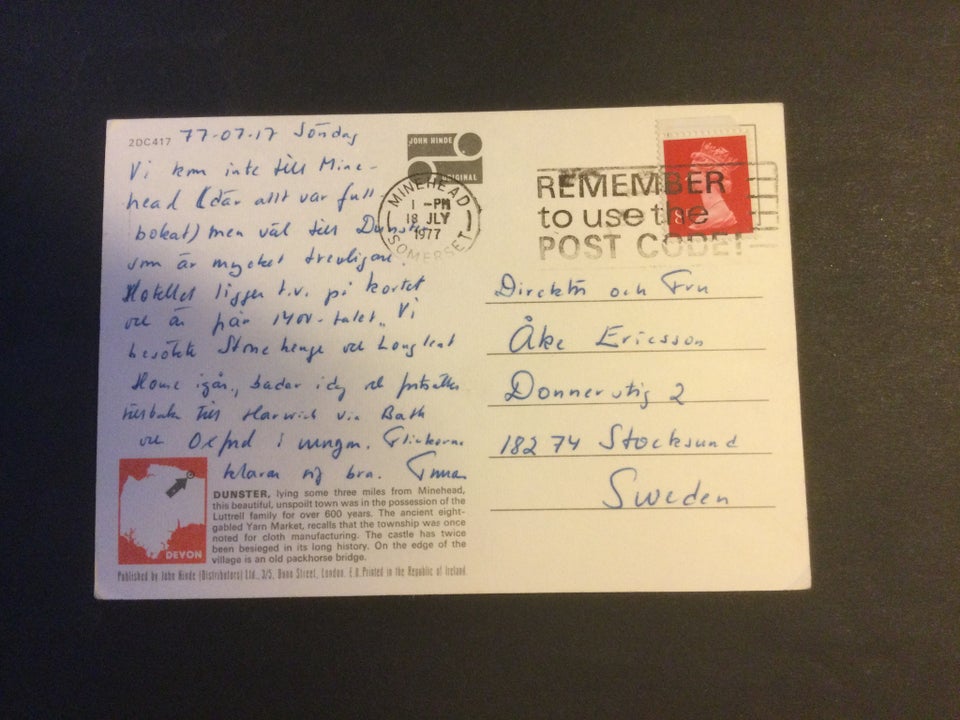 2DC417
77-07-17 Söndag
Vi kom inte till Mine-
head (där allt var full-
bokat) men väl till Dunster
som är mycket trevligare.
Hotellet ligger t.v. på kortet
och är från 1400-talet. Vi
besökte Stonehenge och Longleat
House igår, badar idag och fortsätter
tillbaka till Harwich via Bath
och Oxford i morgon. Flickorna
klarar sig bra.
JOHN HINDE
ORIGINAL
MINEHEAD
1 -PM
18 JLY
1977
SOMERSET
REMEMBER
to use the
POST CODE!
Direktör och Fru
Åke Ericsson
Donnerstig 2
182 74 Stocksund
Sweden
DEVON
DUNSTER, lying some three miles from Minehead,
this beautiful, unspoilt town was in the possession of the
Luttrell family for over 600 years. The ancient eight-
gabled Yarn Market, recalls that the township was once
noted for cloth manufacturing. The castle has twice
been besieged in its long history. On the edge of the
village is an old packhorse bridge.
Published by John Hinde (Distributors) Ltd., 3/5, Dunn Street, London. E.8. Printed in the Republic of Ireland.